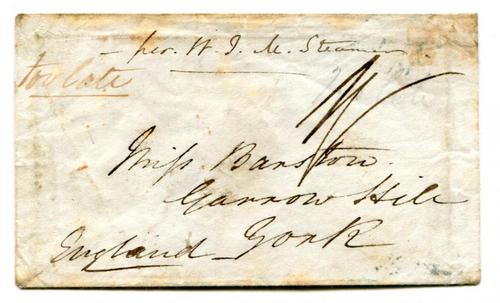 – per. W. I. M. Steamer.
too late
1/
Miss. Barstow.
Garrow Hill
England York